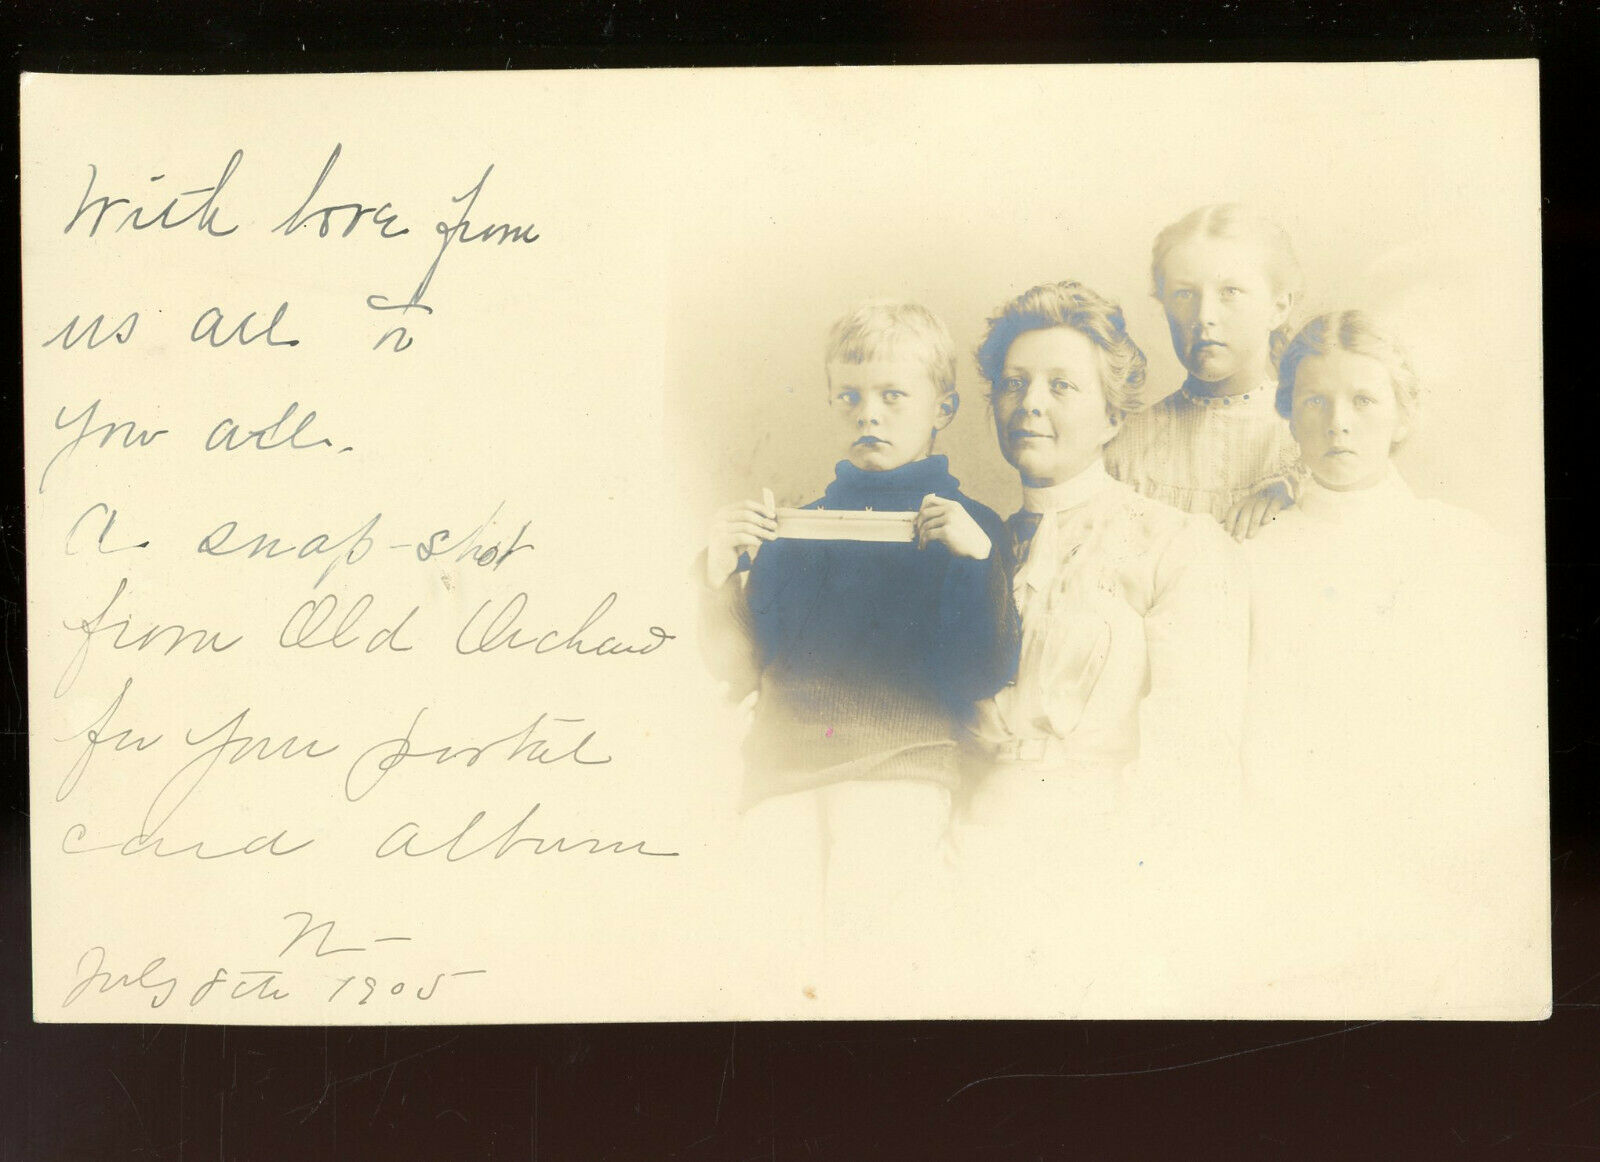 With love from
us all to
you all.
A snap-shot
from Old Orchard
for your postal
card album
N-
July 8th 1905